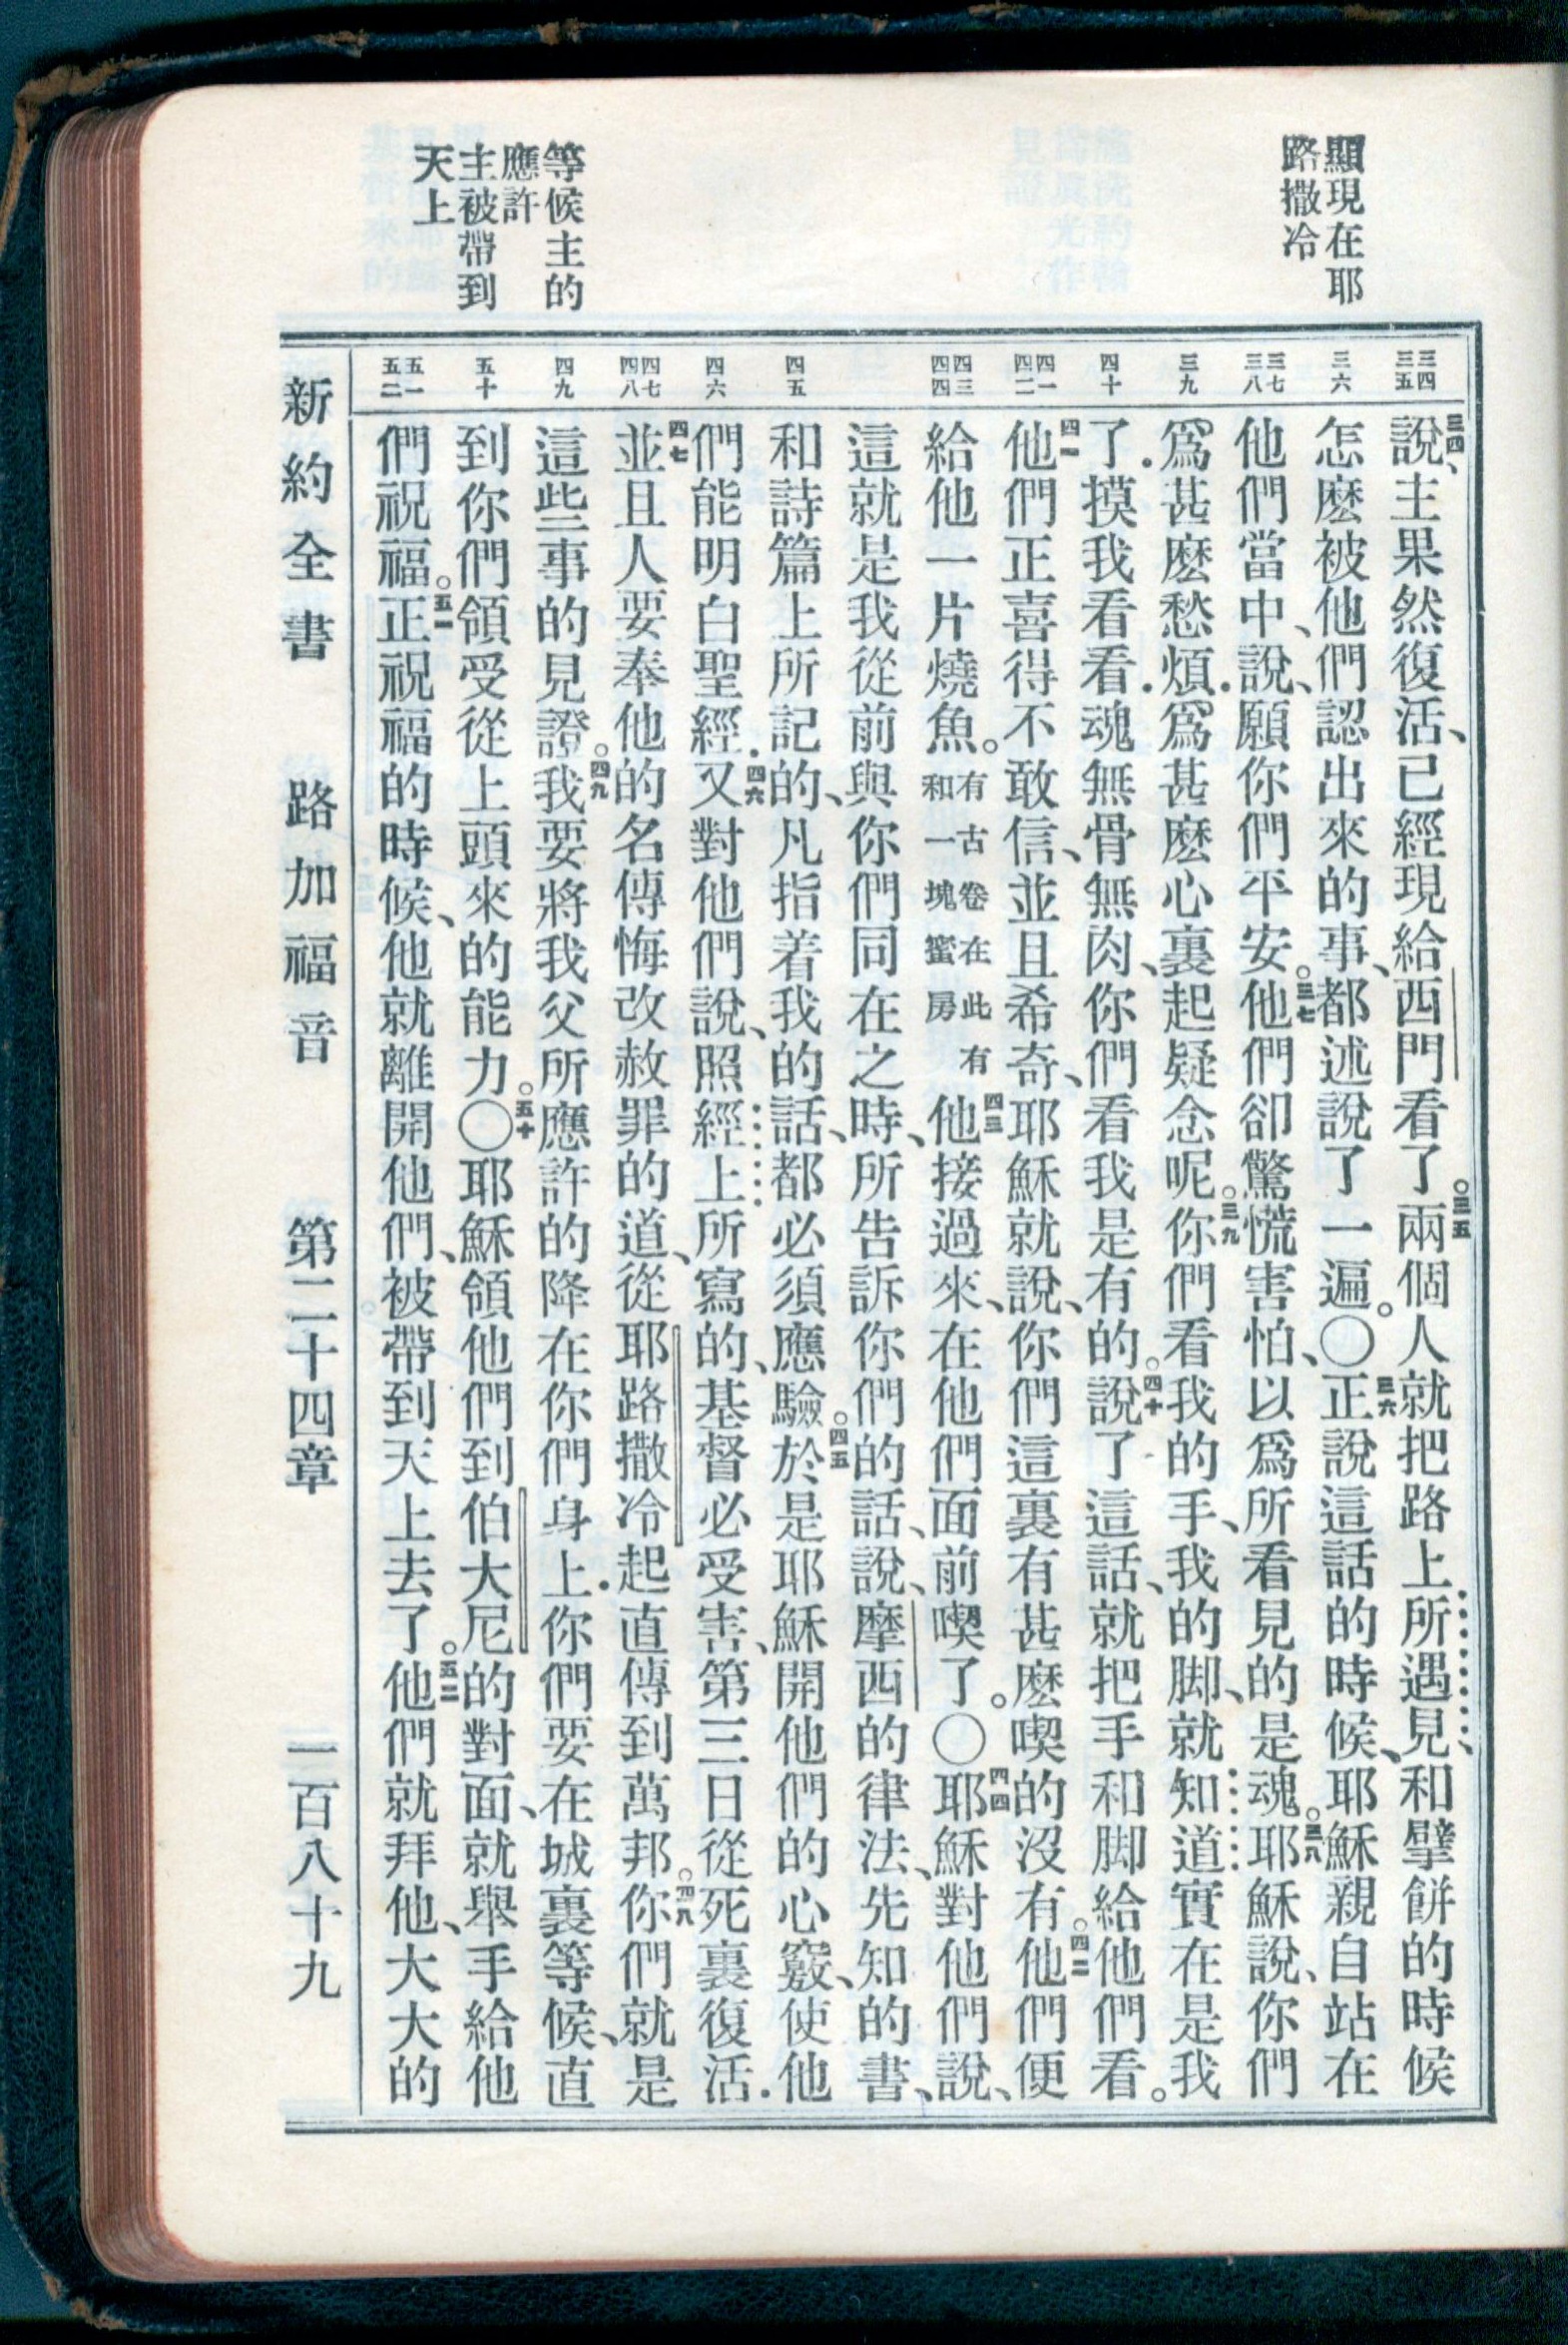 顯現在耶
路撒冷
等候主的
應許
主被帶到
天上
三四
三五
三六
三七
三八
三九
四十
四一
四二
四三
四四
四五
四六
四七
四八
四九
五十
五一
五二
三四說、主果然復活、已經現給西門看了。三五兩個人就把路上所遇見、和擘餅的時候
怎麽被他們認出來的事、都述說了一遍。〇三六正說這話的時候、耶穌親自站在
他們當中、說、願你們平安。三七他們卻驚慌害怕、以爲所看見的是魂。三八耶穌說、你們
爲甚麽愁煩．爲甚麽心裏起疑念呢。三九你們看我的手、我的脚、就知道實在是我
了．摸我看看．魂無骨無肉、你們看我是有的。四十說了這話、就把手和脚給他們看。
四一他們正喜得不敢信、並且希奇、耶穌就說、你們這裏有甚麽喫的沒有。四二他們便
給他一片燒魚。有古卷在此有和一塊蜜房四三他接過來、在他們面前喫了。〇四四耶穌對他們說、
這就是我從前與你們同在之時、所告訴你們的話、說、摩西的律法、先知的書、
和詩篇上所記的、凡指着我的話、都必須應驗。四五於是耶穌開他們的心竅、使他
們能明白聖經．四六又對他們說、照經上所寫的、基督必受害、第三日從死裏復活．
四七並且人要奉他的名傳悔改赦罪的道、從耶路撒冷起直傳到萬邦。四八你們就是
這些事的見證。四九我要將我父所應許的降在你們身上．你們要在城裏等候、直
到你們領受從上頭來的能力。〇五十耶穌領他們到伯大尼的對面、就舉手給他
們祝福。五一正祝福的時候、他就離開他們、被帶到天上去了。五二他們就拜他、大大的
新約全書 路加福音 第二十四章 一百八十九